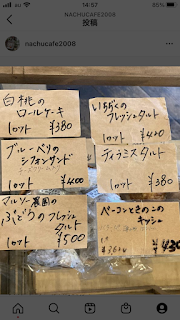 au
14:57
NACHUCAFE2008
投稿
nachucafe2008
白桃の
ロールケーキ
1カット ¥380
いちじくの
フレッシュタルト
1カット ¥420
ブルーベリの
シフォンサンド
1カット ¥400
ティラミスタルト
1カット ¥380
マルソー農園の
ぶどうのフレッシュ
タルト
1カット ¥500
ベーコンときのこの
キッシュ
¥430